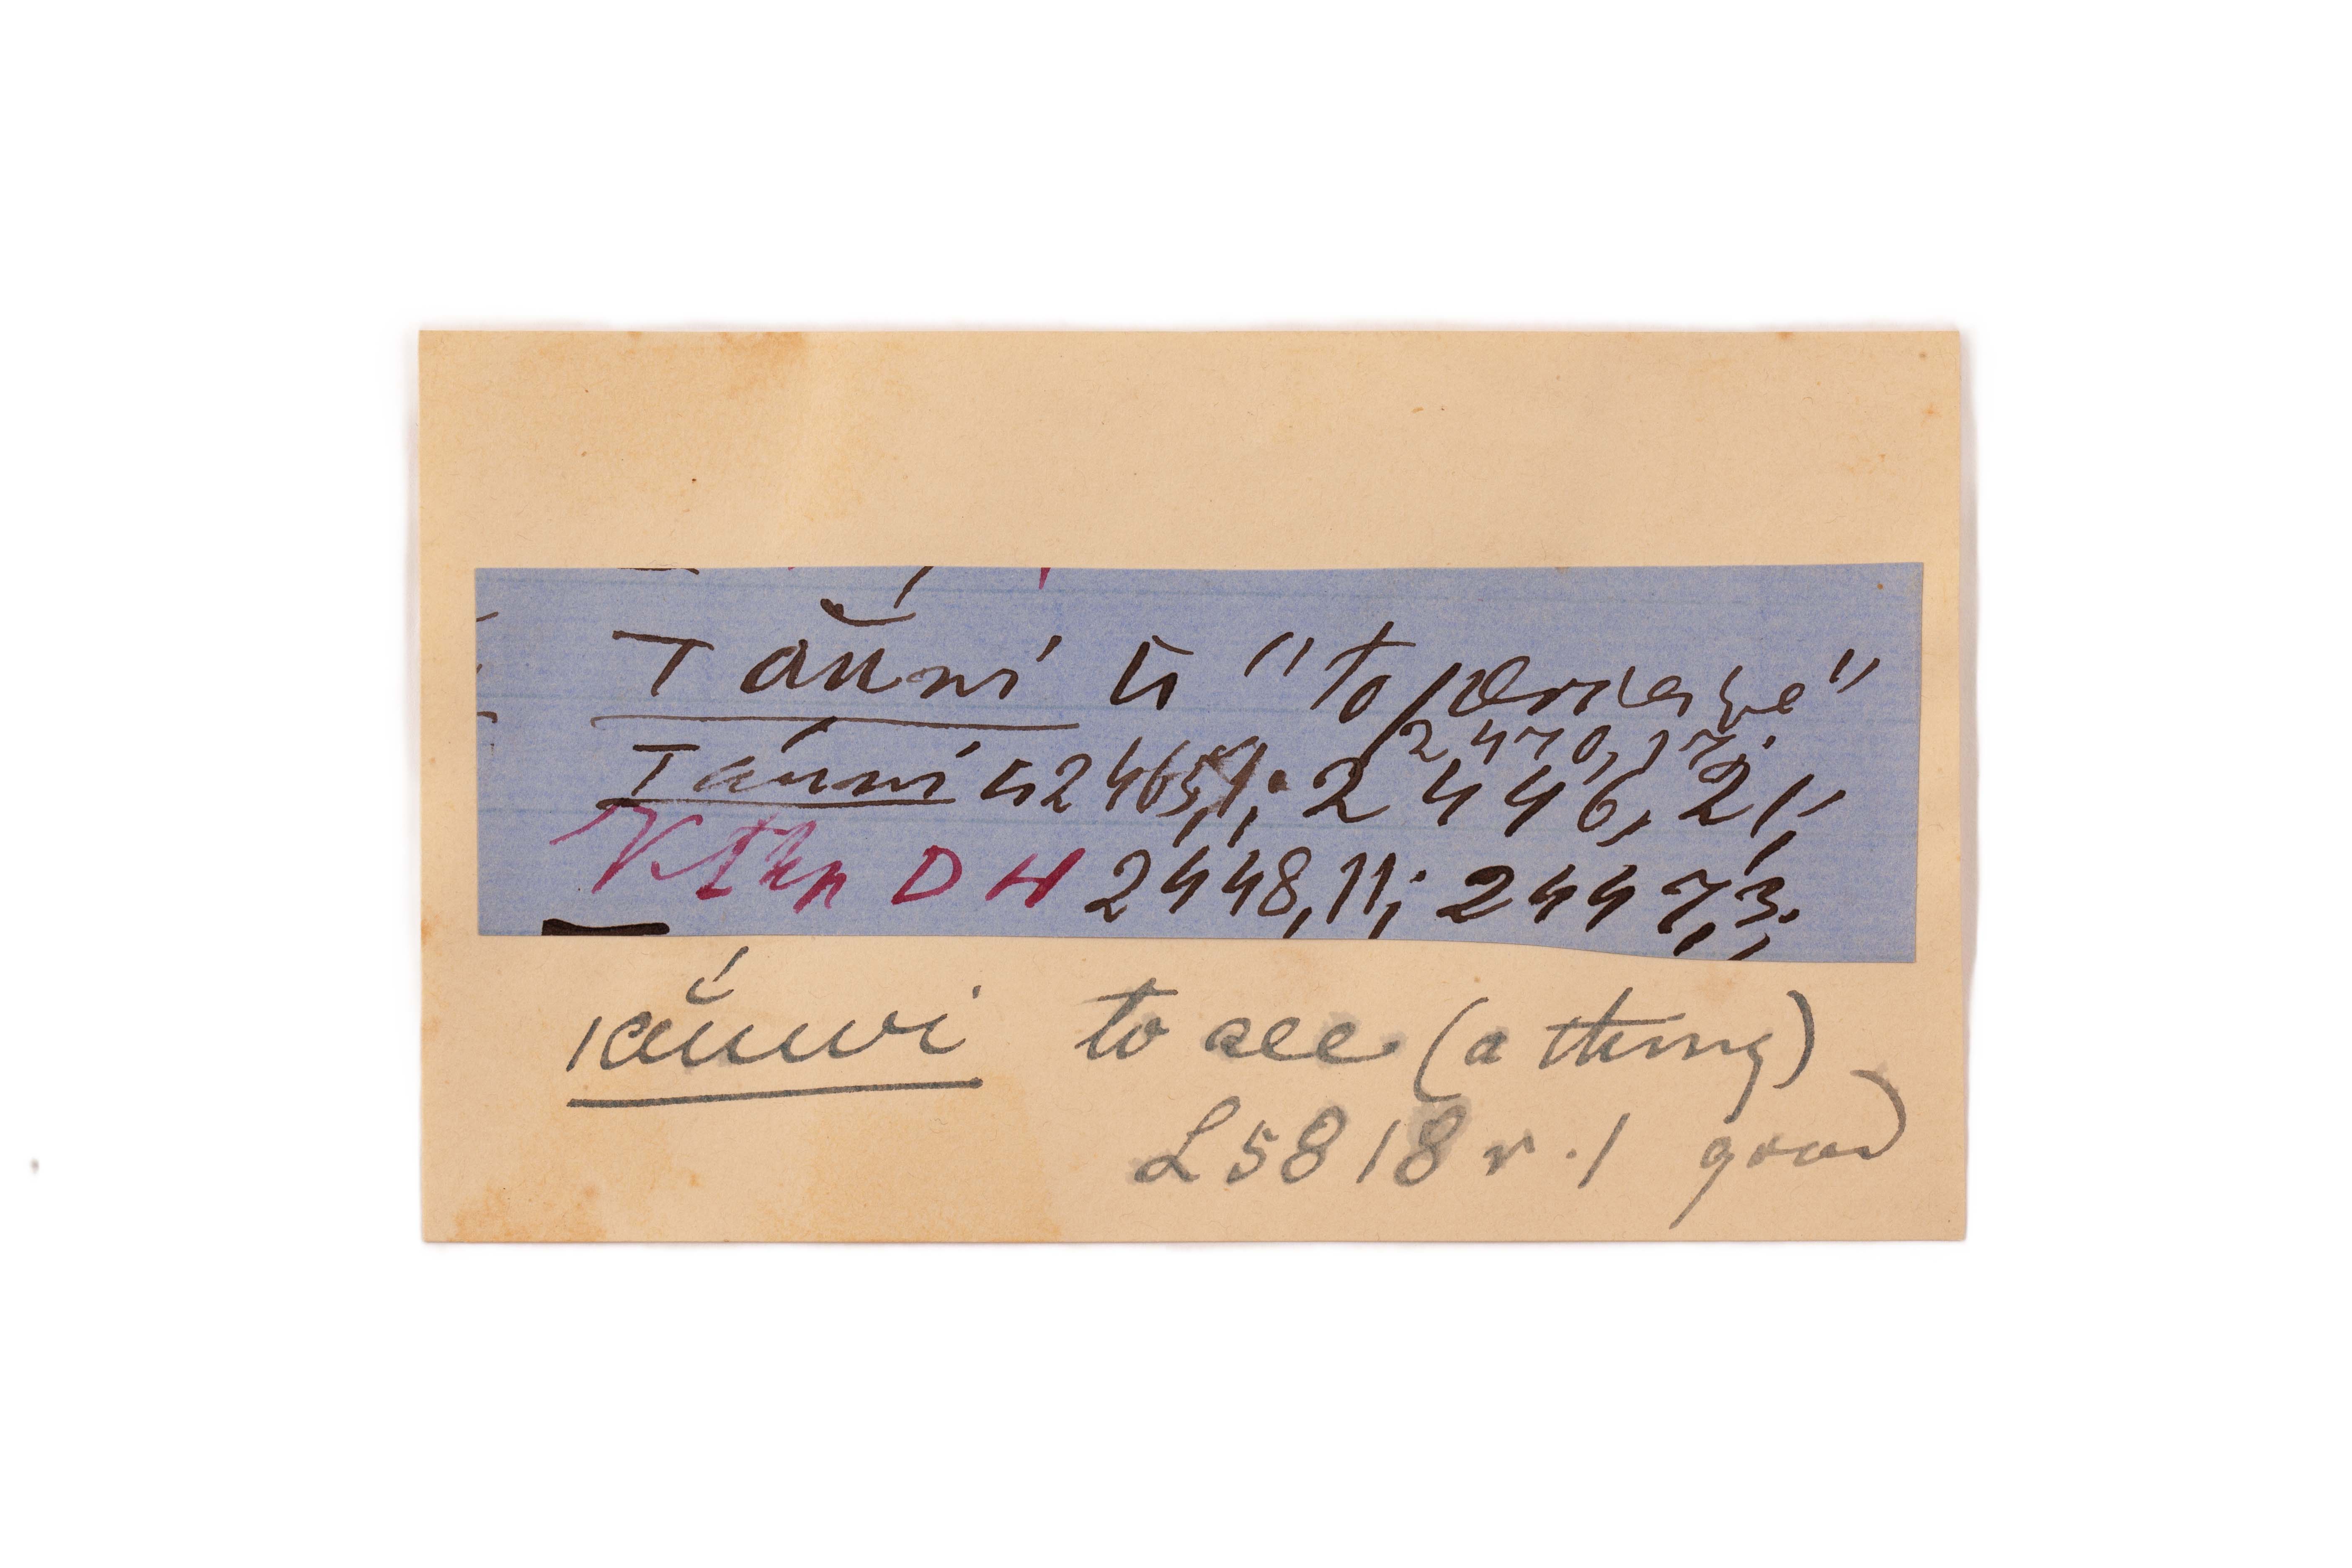 Tắunĩ ti "to perceive"
2470,17;
Táuni ti 2465,1; 2446, 21;
DH 2448,11; 2447,3;
ı̨kắuwi to see (a thing)
L5818 r.1 good)